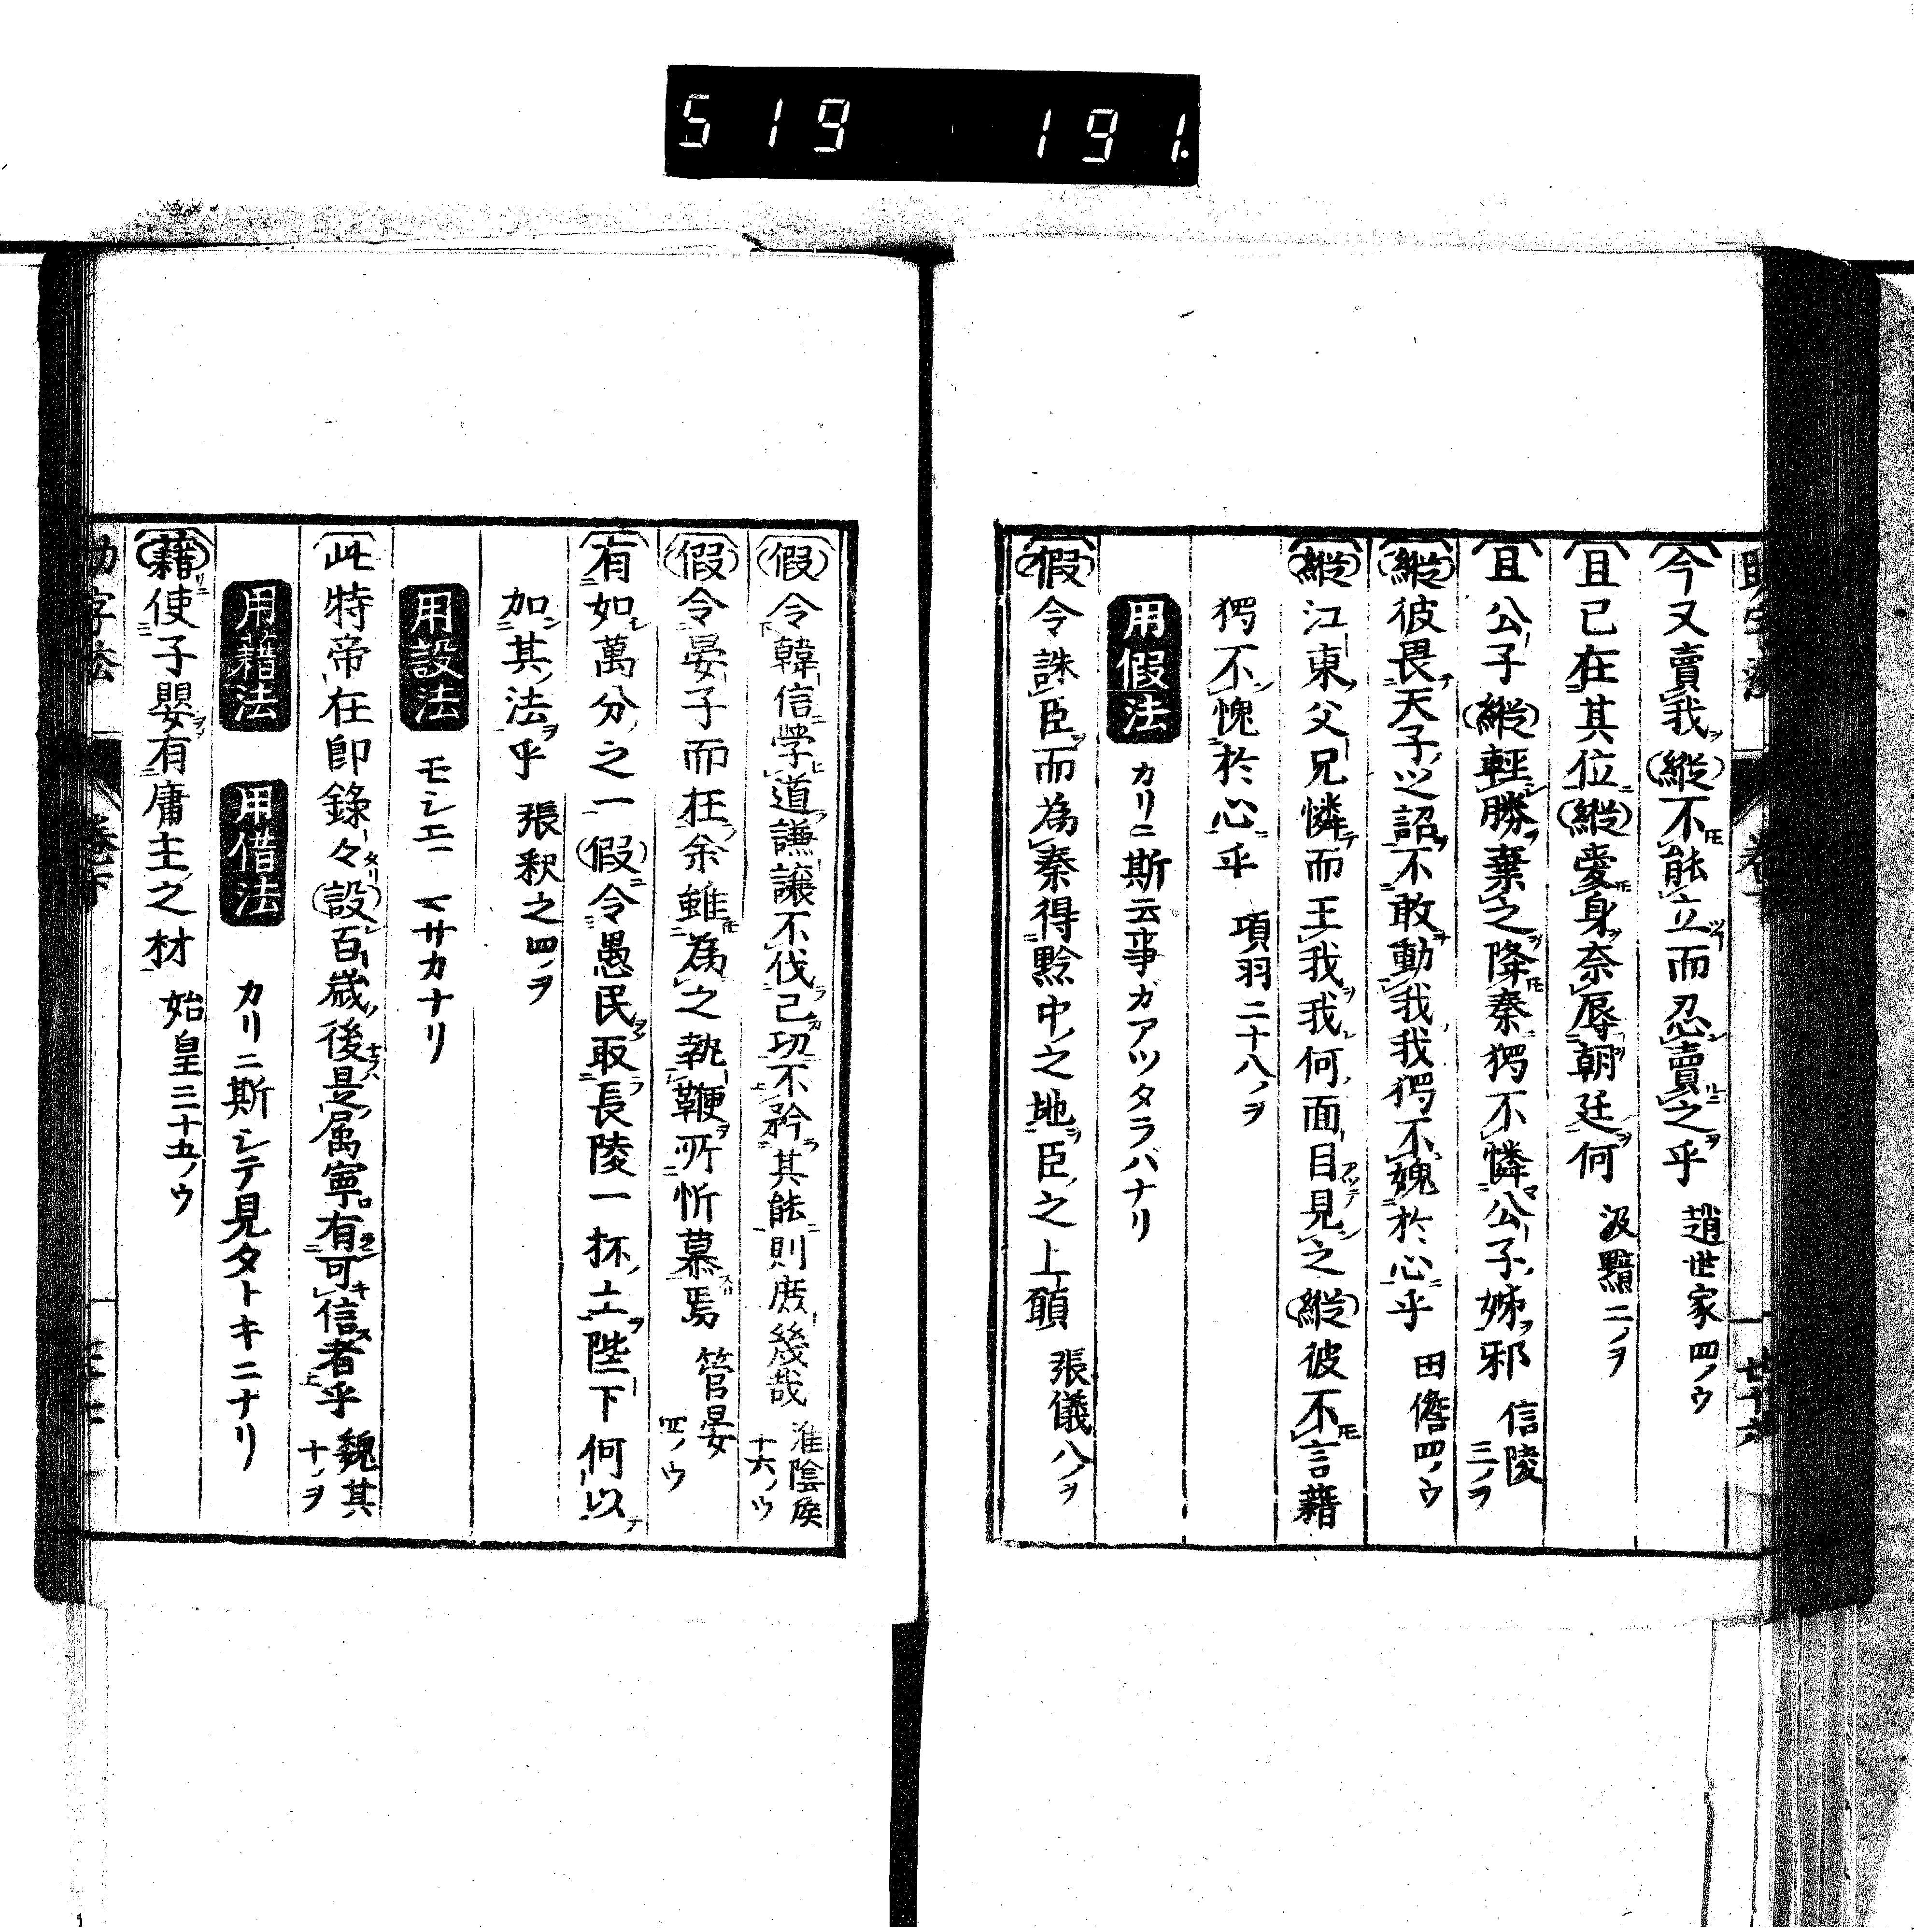 519 191.
今又賣我縱不能立而忍賣之乎 趙世家四ノウ
且已在其位縱愛身奈辱朝廷何 汲黯二ノヲ
且公子縱輕勝棄之降秦獨不憐公子姊邪 信陵三ノヲ
縱彼畏天子之詔不敢動我我獨不媿於心乎 田儋四ノウ
縱江東父兄憐而王我我何面目見之縱彼不言藉
獨不愧於心乎 項羽二十八ノヲ
用假法 カリニ斯云事ガアツタラバナリ
假令誅臣而為秦得黔中之地臣之上願 張儀八ノヲ
假令韓信学道謙讓不伐己功不矜其能則庶幾哉 淮陰侯十六ノウ
假令晏子而在余雖為之執鞭所忻慕焉 管晏四ノウ
有如萬分之一假令愚民取長陵一抔土陛下何以
加其法乎 張釈之四ノヲ
用設法 モシエニ マサカナリ
此特帝在即錄々設百歲後是属寧有可信者乎 魏其十ノヲ
用藉法 用借法 カリニ斯シテ見タトキニナリ
藉使子嬰有庸主之材 始皇三十五ノウ
助字法 卷下